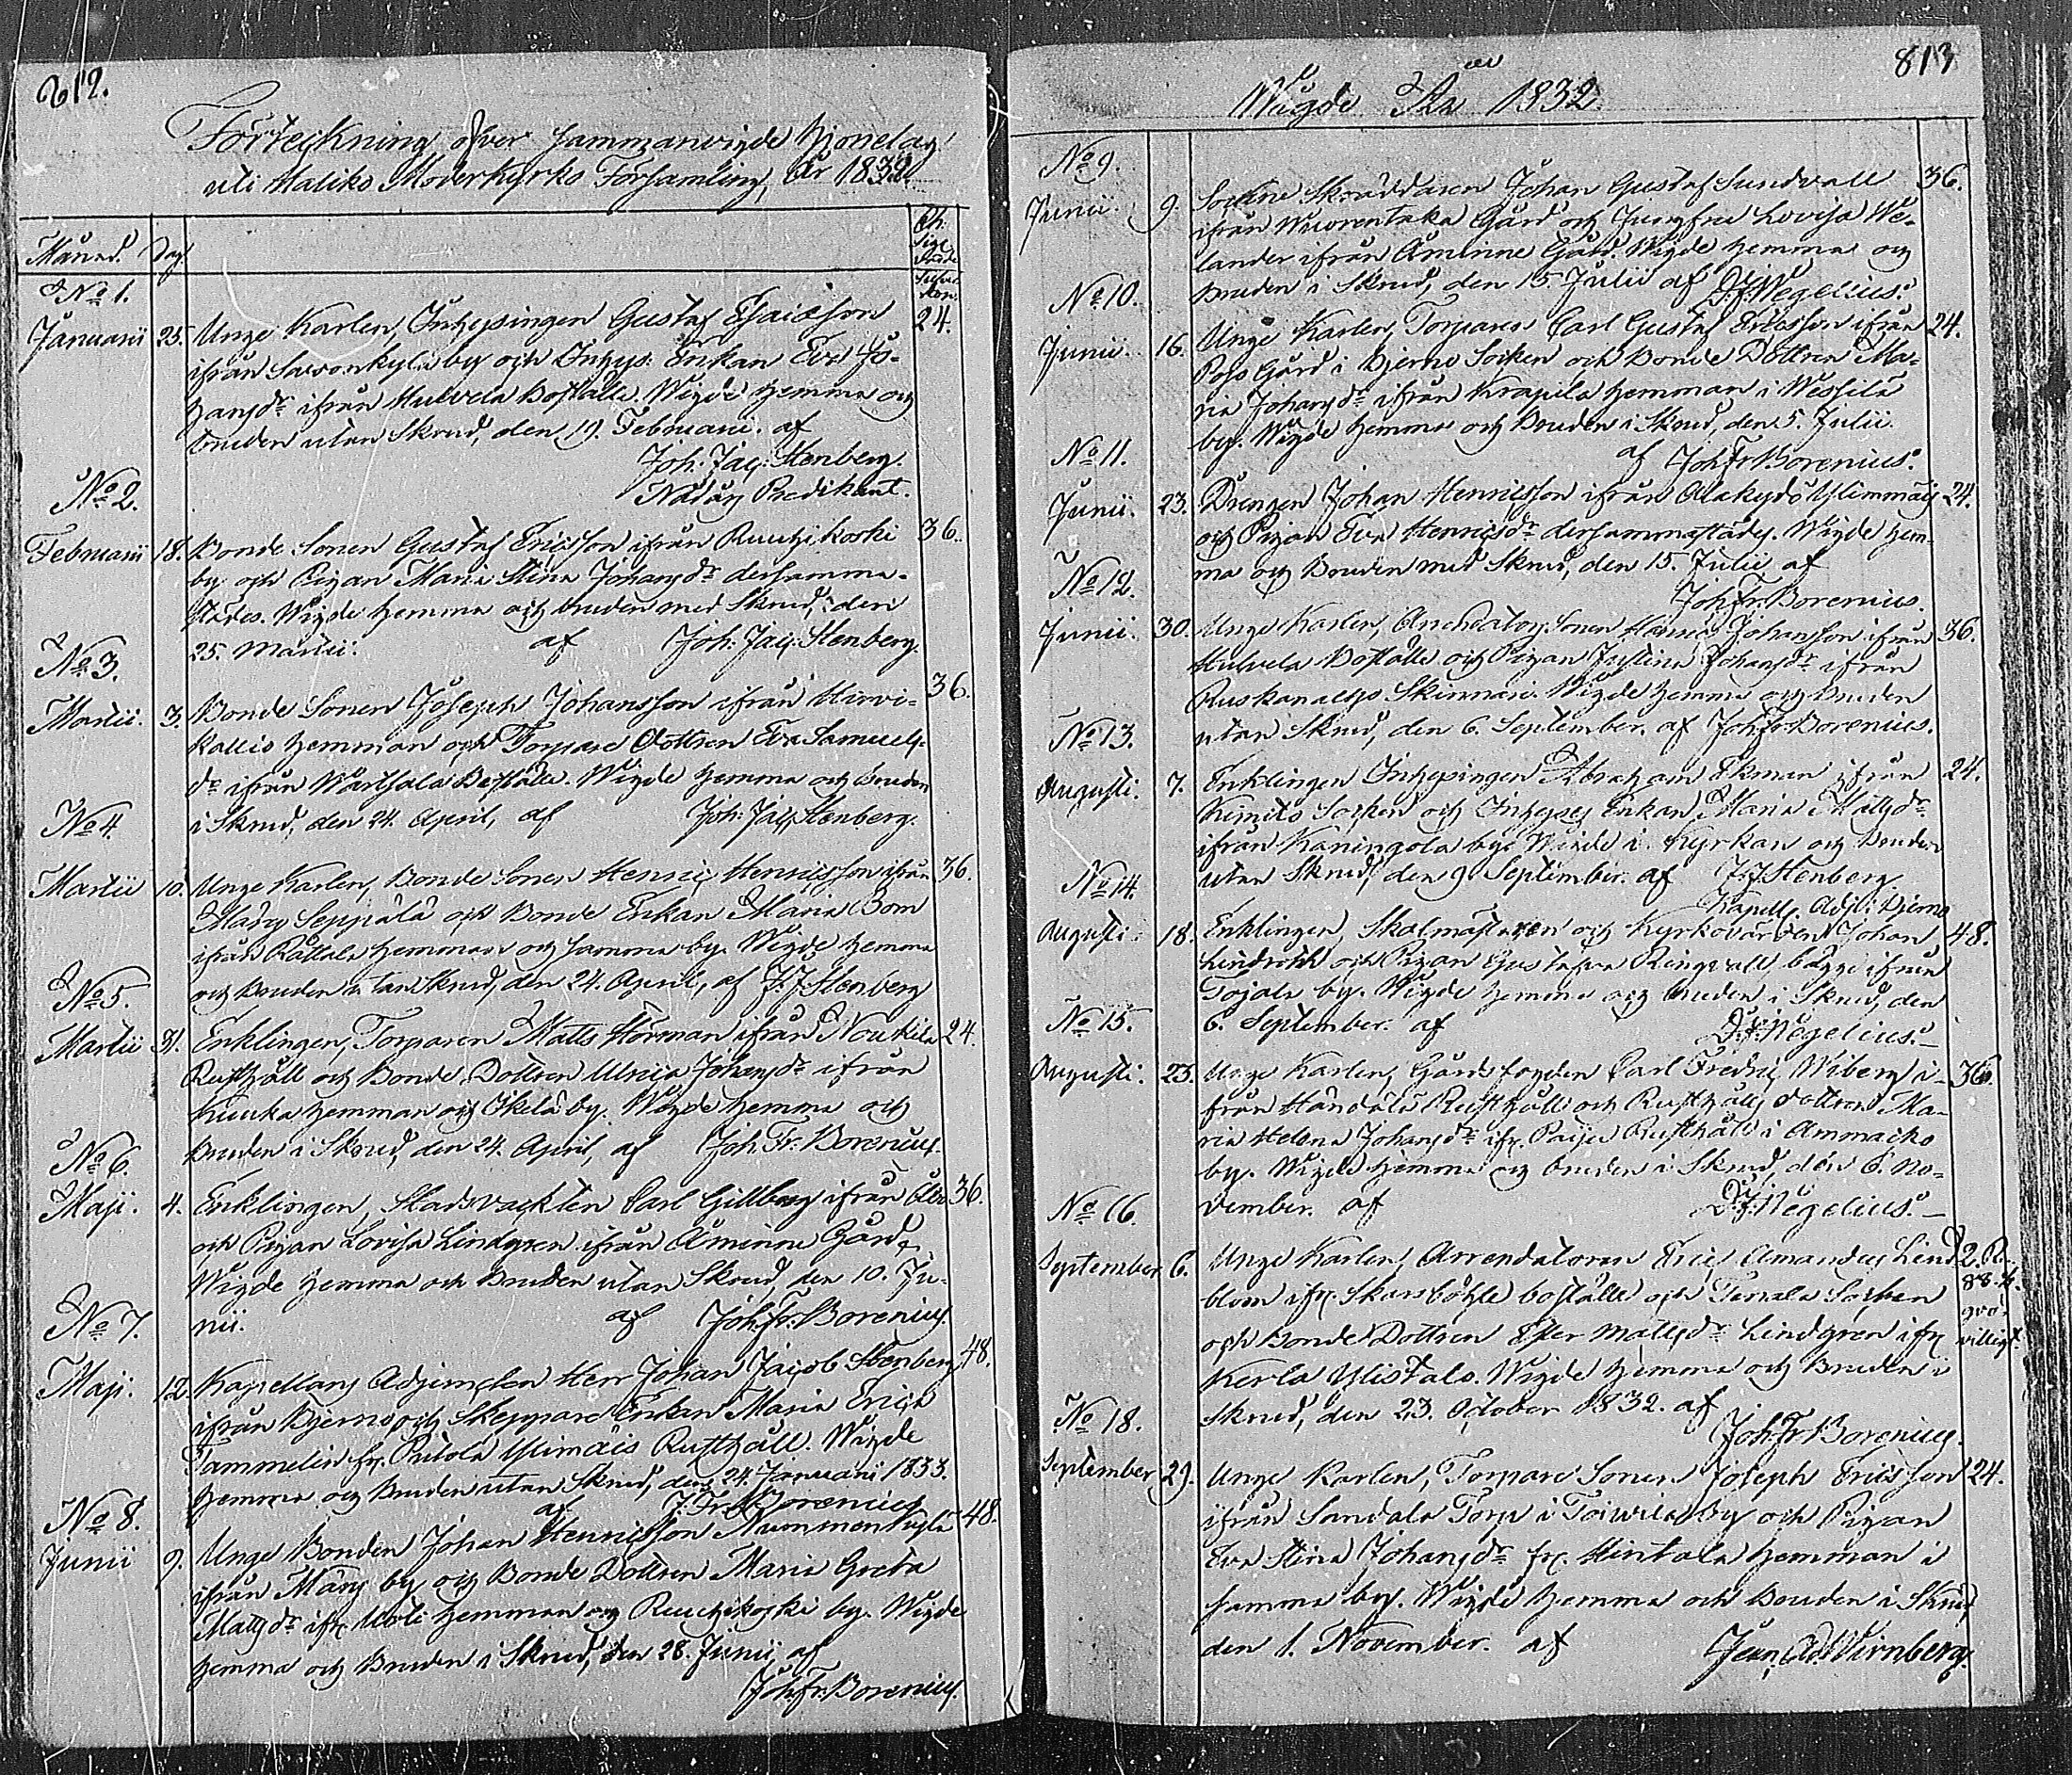 812.
Förteckning öfver sammanvigde Hjonelag
uti Haliko Moderkyrko Församling, År 1832.
Månad. Dag.
No 1.
Januarii 25. Unge Karlen, Inhysingen Gustaf Esaiasson 24.
ifrån Sawonkylä by och Inhys: Enkan Eva Jo-
hansdr ifrån Hulvela Boställe. Wigde hemma och
bruden utan Skrud, den 19. Februarii. af
Joh: Jac: Stenberg.
Nådårs Predikant.
No 2.
Februarii 18. Bonde Sonen Gustaf Ericsson ifrån Ruutzikoski 36.
by och Pigan Maria Stina Johansdr dersamma-
städes. Wigde hemma och bruden med Skrud, den
25. Martii. af Joh: Jac: Stenberg.
No 3.
Martii. 3. Bonde Sonen Joseph Johansson ifrån Hirvi- 36.
kallio hemman och Torpare Dottren Eva Samuels-
dr ifrån Wartsala Boställe. Wigde hemma och bruden
i Skrud, den 24. April, af Joh: Jac: Stenberg.
No 4.
Martii 10. Unge Karlen, Bonde Sonen Henric Henricsson ifrån 36.
Seppälä och Bonde Enkan Maria
ifrån Rättälä hemman och samma by. Wigde hemma
och Bruden utan Skrud, den 24. April, af J. J. Stenberg
No 5.
Martii 31. Enklingen, Torparen Matts Hörman ifrån Noukila 24.
Rusthåll och Bonde Dottren Ulrica Johansdr ifrån
Kuuka hemman och Ikelä by. Wigde hemma och
Bruden i Skrud, den 24. April, af Joh. Fr. Borenius.
No 6.
Maji. 4. Enklingen, Stadsvackten Carl Gillberg ifrån Åbo 36.
och Pigan Lovisa Lindgren ifrån Åminne Gård.
Wigde hemma och Bruden utan Skrud, den 10. Ju-
nii. af Joh. Fr. Borenius.
No 7.
Maji. 12. Kapellans Adjuncten Herr Johan Jacob Stenberg 48.
ifrån Bjerno och Skeppare Enkan Maria Erica
Tammelin fr. Pritola Ylimäis Rusthåll. Wigde
hemma och Bruden utan Skrud, den 24. Januarii 1833.
af J. Fr. Borenius
No 8.
Junii 9. Unge Bonden Johan Henricsson Nummenkylä 48.
ifrån Märy by och Bonde Dottren Maria Greta
Mattsdr ifr. Uoti hemman och Ruutzikoski by. Wigde
hemma och Bruden i Skrud, den 28. Junii, af
Joh. Fr. Borenius.
813
Wigde År 1832.
No 9.
Junii. 9. Sockne Skräddaren Johan Gustaf Sundvall 36.
ifrån Wuorentaka Gård och Jungfru Lovisa We-
lander ifrån Åminne Gård. Wigde hemma och
Bruden i Skrud, den 15. Julii af D. J. Wegelius.
No 10.
Junii. 16. Unge Karlen, Torparen Carl Gustaf Ericsson ifrån 24.
Pohs Gård i Bjerno Socken och Bonde Dottren Ma-
ria Johansdr ifrån Krapila hemman i Wessilä
by. Wigde hemma och Bruden i Skrud, den 5. Julii.
af Joh. Fr. Borenius.
No 11.
Junii. 23. Drengen Johan Henricsson ifrån Alakydö Ylimmäis 24.
och Pigan Eva Henricsdr dersammastädes. Wigde hem-
ma och Bruden med Skrud, den 15. Julii af
Joh. Fr. Borenius.
No 12.
Junii. 30. Unge Karlen, Arrendators Sonen Johansson ifrån 36.
Hulvela Boställe och Pigan Justina Johansdr ifrån
Ruskanalho Skinnari. Wigde hemma och Bruden
utan Skrud, den 6. September. af Joh. Fr. Borenius.
No 13.
Augusti. 7. Enklingen Inhysingen Abraham Ekman ifrån 24.
Kimito Socken och Inhyses Enkan Maria Mattsdr
ifrån Kaningola by. Wigde i Kyrkan och Bruden
utan Skrud, den 9. September. af J. J. Stenberg.
Kapells. Adj. i Bjerno
No 14.
Augusti. 18. Enklingen, Skolmästaren och Kyrkovärden Johan 48.
Lindroth och Pigan Gustafva Ringvall, bägge ifrån
Tojala by. Wigde hemma och bruden i Skrud, den
6. September. af D. J. Wegelius.
No 15.
Augusti. 23. Unge Karlen, Gårdsfogden Carl Fredric Wiberg i- 36.
från Håndälä Rusthåll och Rusthålls dottren Ma-
ria Helena Johansdr ifr. Paiju Rusthåll i Ammaiko
by. Wigde hemma och bruden i Skrud, den 6. No-
vember. af D. J. Wegelius.
No 16.
September 6. Unge Karlen, Arrendatoren Eric Amandus Lind- 2. R.
blom ifr. Skarsböhle boställe och Tenala Socken 88. k.
och Bonde Dottren Ester Mattsdr Lindgren ifr.
Kerla Ylistalo. Wigde hemma och Bruden i
Skrud, den 23. October 1832. af
Joh. Fr. Borenius.
No 18.
September 29. Unge Karlen, Torpare Sonen Joseph Ericsson 24.
ifrån Sandala Torp i Toiwila by och Pigan
Eva Stina Johansdr fr. Hintala hemman i
samma by. Wigde hemma och Bruden i Skrud
den 1. November. af Jean Ad. Wirnberg.